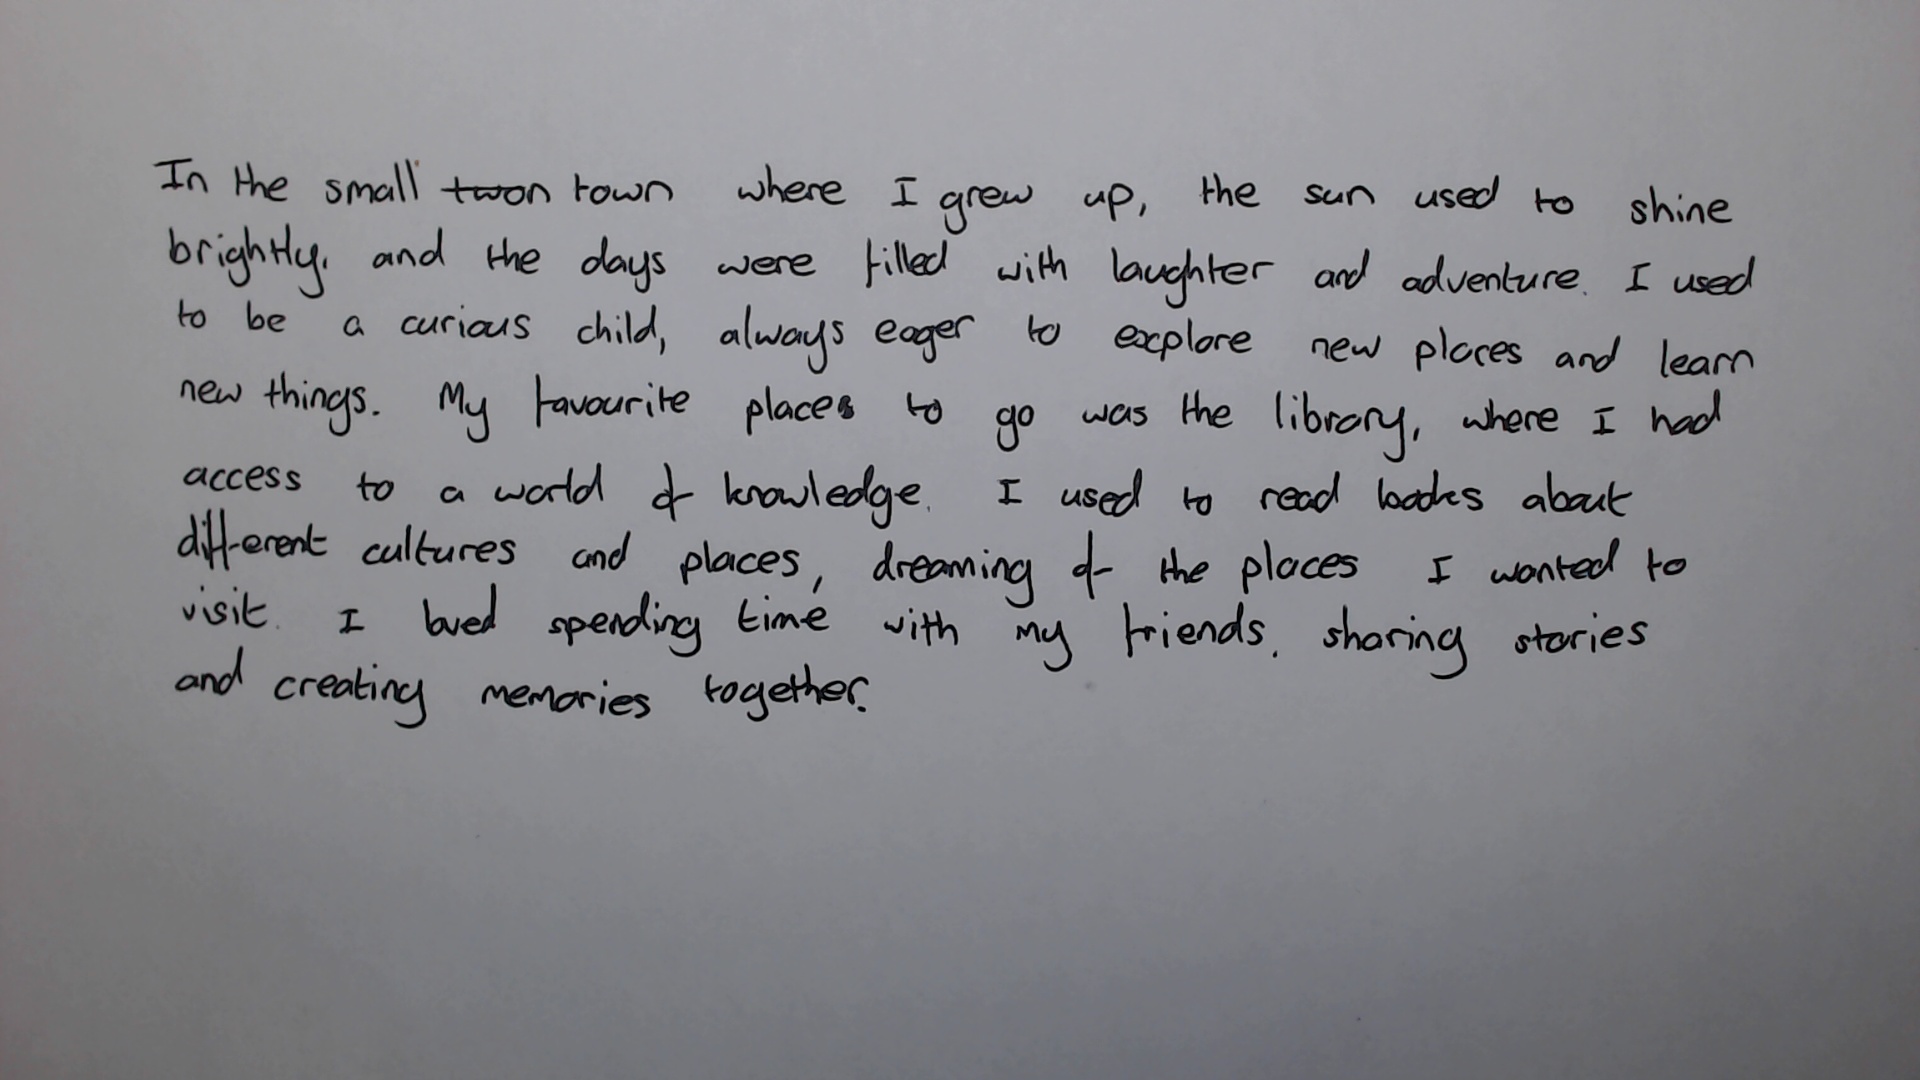 In the small twon town where I grew up, the sun used to shine
brightly, and the days were filled with laughter and adventure. I used
to be a curious child, always eager to explore new places and learn
new things. My favourite places to go was the library, where I had
access to a world of knowledge. I used to read books about
different cultures and places, dreaming of the places I wanted to
visit. I loved spending time with my friends, sharing stories
and creating memories together.